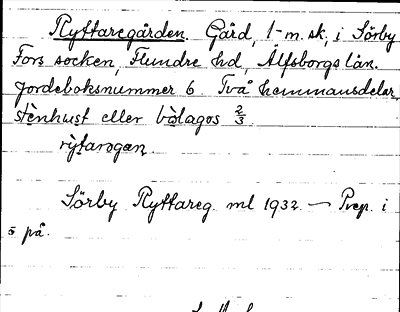 Ryttaregården. Gård, 1 m. sk, i Sörby
Fors socken, Flundre hd, Älfsborgs län.
Jordeboksnummer 6. Två hemmansdelar,
stènhust eller bòlagos 2/3
rỳtarogan
Sörby Ryttareg. ml 1932 — Prep. i
s på.